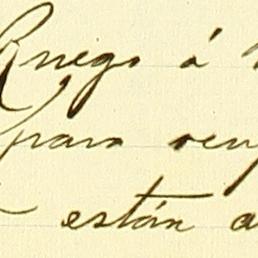 Ruego á
para
están a